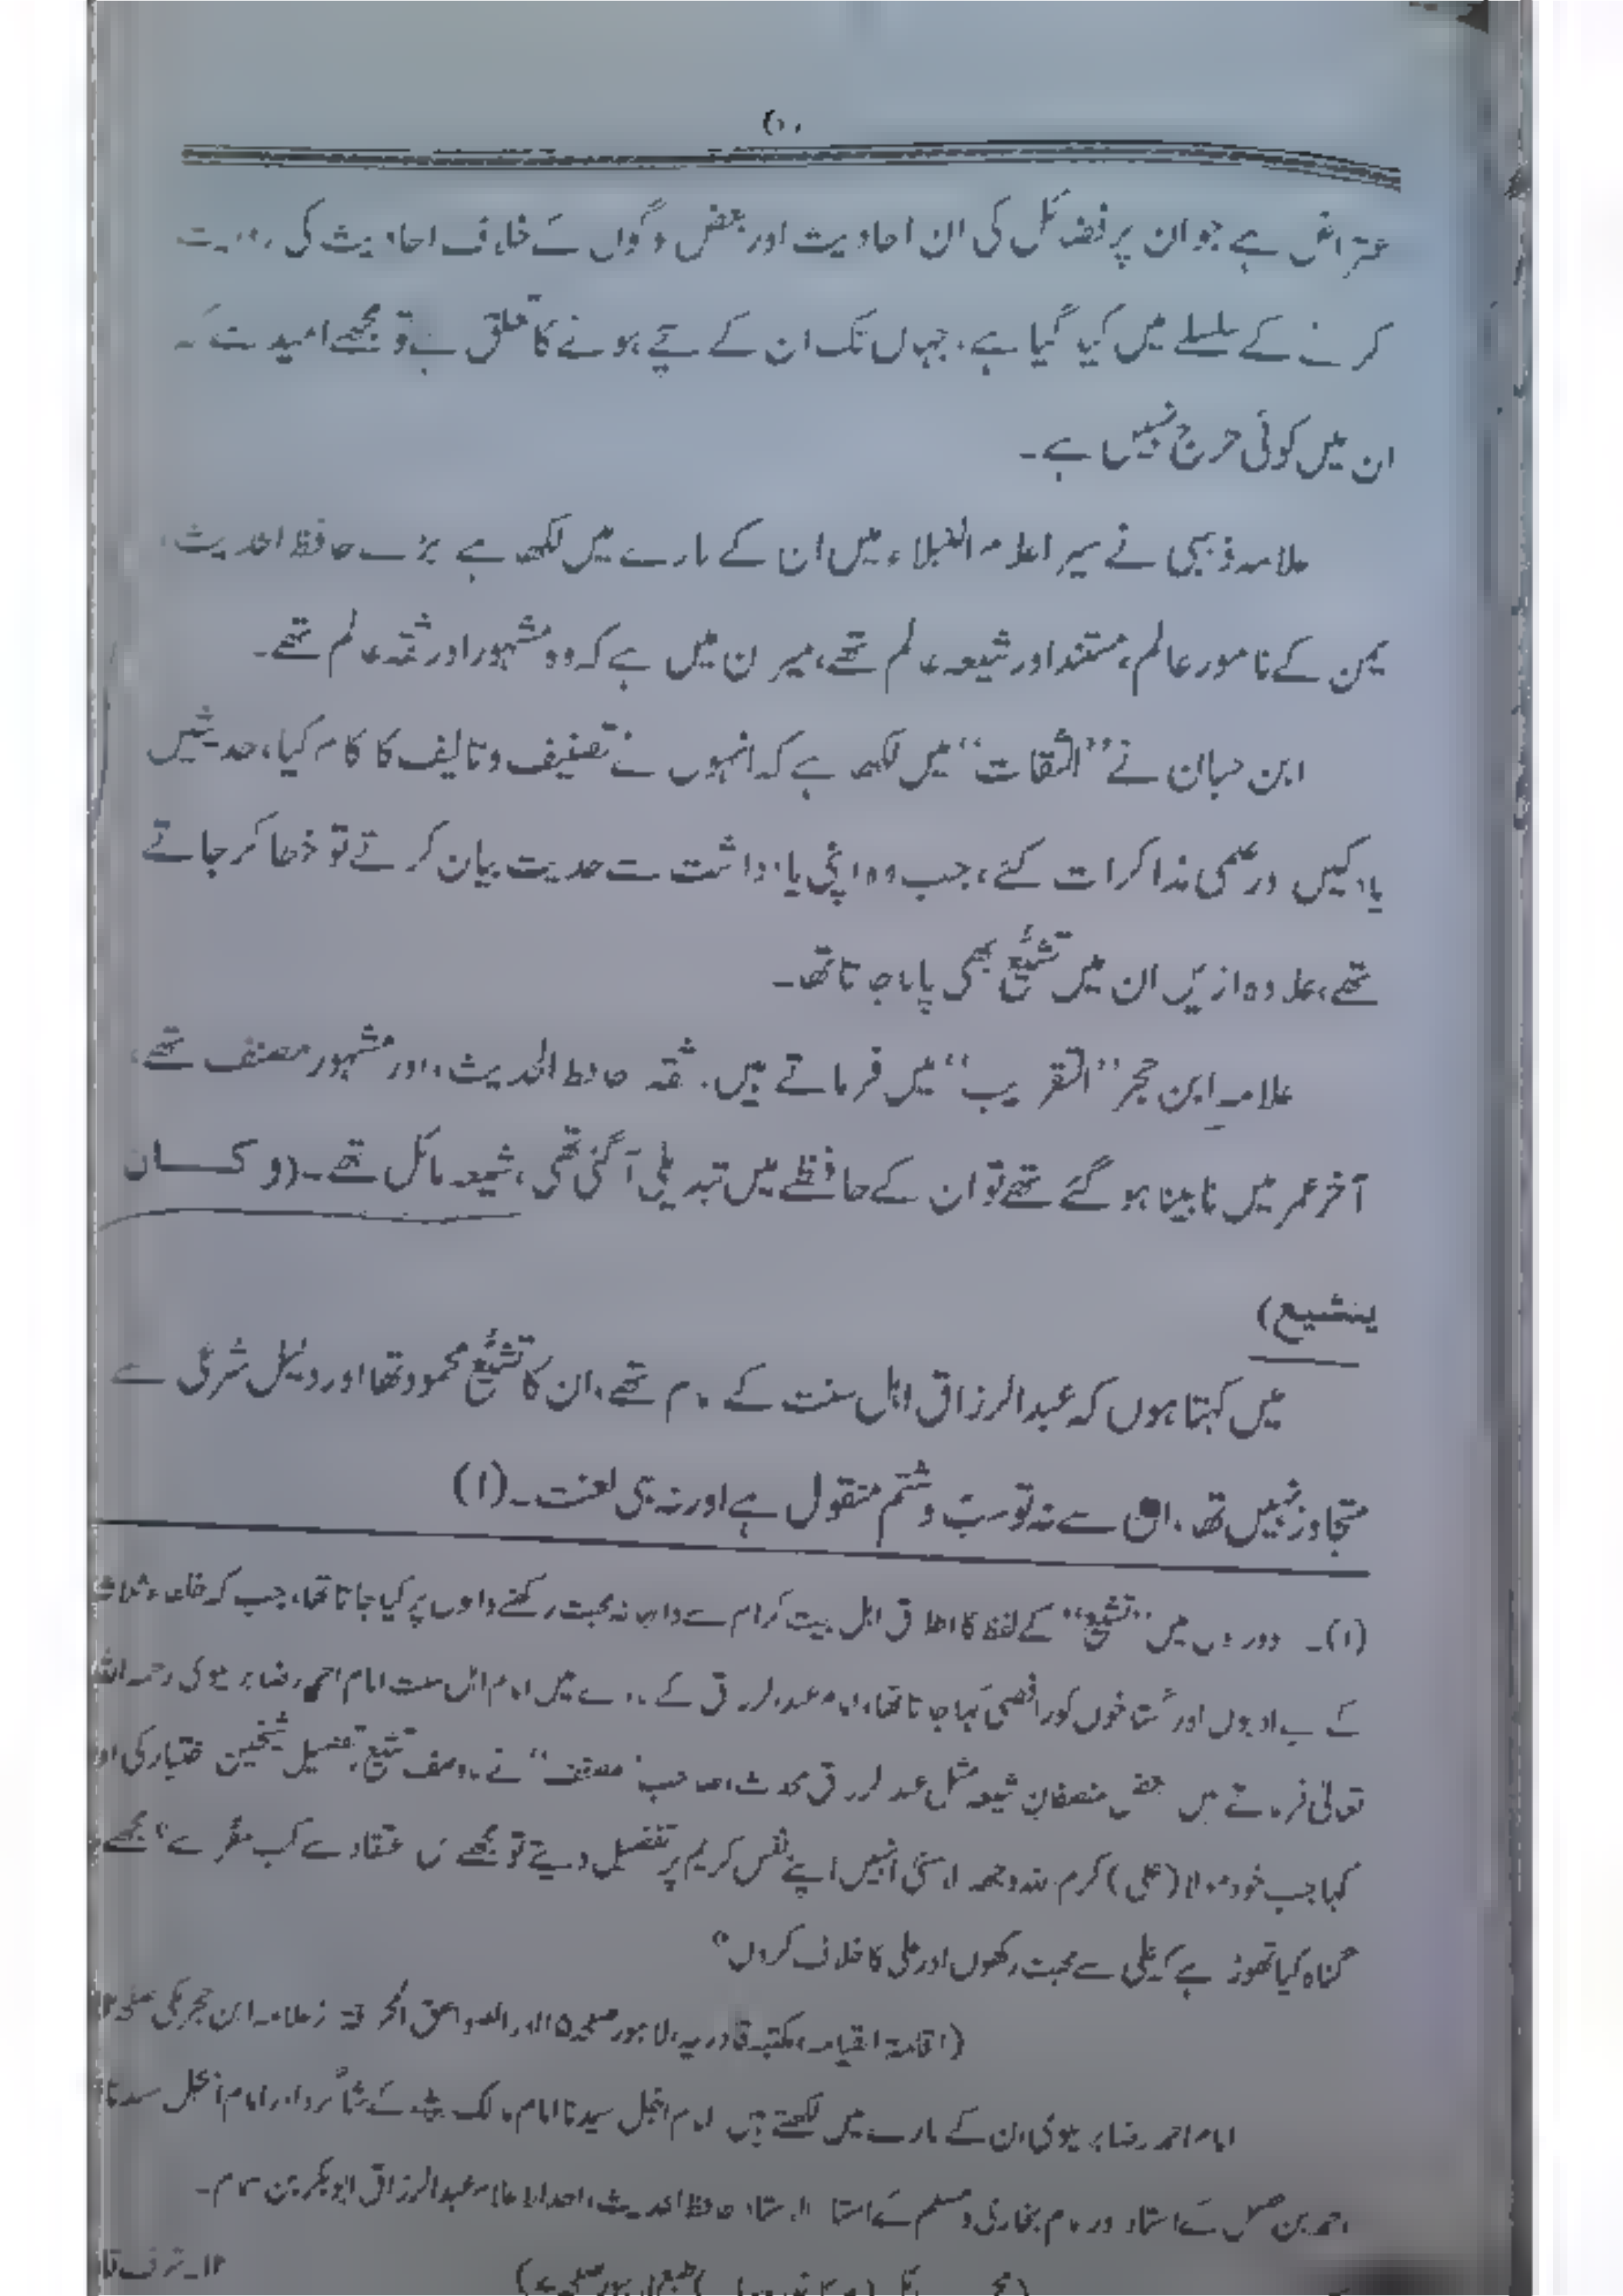 اعتراض ہے جو ان پر فضائل کی ان احادیث اور بعض لوگوں کے خلاف احادیث کی روایت
کرنے کے سلسلے میں کیا گیا ہے، جہاں تک ان کے سچے ہونے کا تعلق ہے تو مجھے امید ہے کہ
ان میں کوئی حرج نہیں ہے۔
علامہ ذہبی نے سیر اعلام النبلاء میں ان کے بارے میں لکھا ہے بڑے حافظ الحدیث،
یمن کے نامور عالم، مستند اور شیعہ عالم تھے، میزان میں ہے کہ وہ مشہور اور ثقہ عالم تھے۔
ابن حبان نے "الثقات" میں لکھا ہے کہ انہوں نے تصنیف و تالیف کا کام کیا، حدیثیں
یاد کیں اور علمی مذاکرات کئے، جب وہ اپنی یادداشت سے حدیث بیان کرتے تو خطا کر جاتے
تھے، علاوہ ازیں ان میں تشیّع بھی پایا جاتا تھا۔
علامہ ابن حجر "التقریب" میں فرماتے ہیں: ثقہ حافظ الحدیث، اور مشہور مصنف تھے،
آخر عمر میں نابینا ہو گئے تھے تو ان کے حافظے میں تبدیلی آگئی تھی، شیعہ مائل تھے۔ (وکان
یتشیع)
میں کہتا ہوں کہ عبدالرزاق اہل سنت کے امام تھے، ان کا تشیّع محمود تھا اور دلیل شرعی سے
متجاوز نہیں تھا، ان سے نہ تو سبّ و شتم منقول ہے اور نہ ہی لعنت۔ (۱)
(۱)۔ دور میں "تشیّع" کے لفظ کا اطلاق اہل بیت کرام سے والہانہ محبت رکھنے والوں پر کیا جاتا تھا، جب کہ خلفاء ثلاثہ
کے بے ادبوں اور گستاخوں کو رافضی کہا جاتا تھا، امام عبدالرزاق کے بارے میں امام اہل سنت امام احمد رضا بریلوی رحمہ اللہ
تعالیٰ فرماتے ہیں بعض منصفانِ شیعہ مثل عبدالرزاق محدث صاحب "مصنف" نے باوصف تشیع تفضیل شیخین اختیار کی اور
کہا جب خود مولا (علی) کرم اللہ وجہہ الاسنیٰ انہیں اپنے نفس کریم پر تفضیل دیتے تو مجھے اس اعتقاد سے کب مفر ہے؟ مجھے
گناہ کیا تھوڑا ہے کہ علی سے محبت رکھوں اور علی کا خلاف کروں؟
(اقامۃ القیامہ، مکتبہ قادریہ، لاہور صفحہ ۵ الصواعق المحرقہ از علامہ ابن حجر مکی صفحہ
امام احمد رضا بریلوی ان کے بارے میں لکھتے ہیں امام اجل سیدنا امام مالک کے شاگرد اور امام اجل سیدنا
احمد بن حنبل کے استاد اور امام بخاری و مسلم کے استاذ الاستاذ حافظ الحدیث، احد الاعلام عبدالرزاق ابوبکر بن ہمام۔
۱۲۔شرف